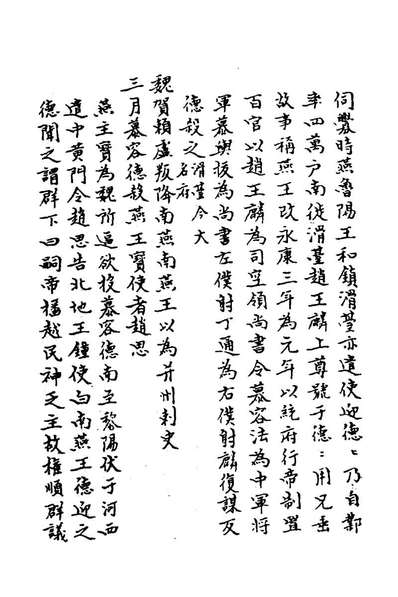 伺釁時燕魯陽王和鎮滑臺亦遣使迎德〻乃自鄴
率四萬户南徙滑臺趙王麟上尊號于德〻用兄垂
故事稱燕王改永康三年為元年以統府行帝制置
百官以趙王麟為司空領尚書令慕容法為中軍將
軍慕輿拔為尚書左僕射丁通為右僕射麟復謀反
德殺之滑臺今大
名府
魏賀賴盧叛降南燕南燕王以為并州刺史
三月慕容德殺燕王寶使者趙思
燕主寶為魏所逼欲投慕容德南至黎陽伏于河西
遣中黄門令趙思告北地王鐘使白南燕王德迎之
德聞之謂群下曰嗣帝播越民神乏主故權順群議